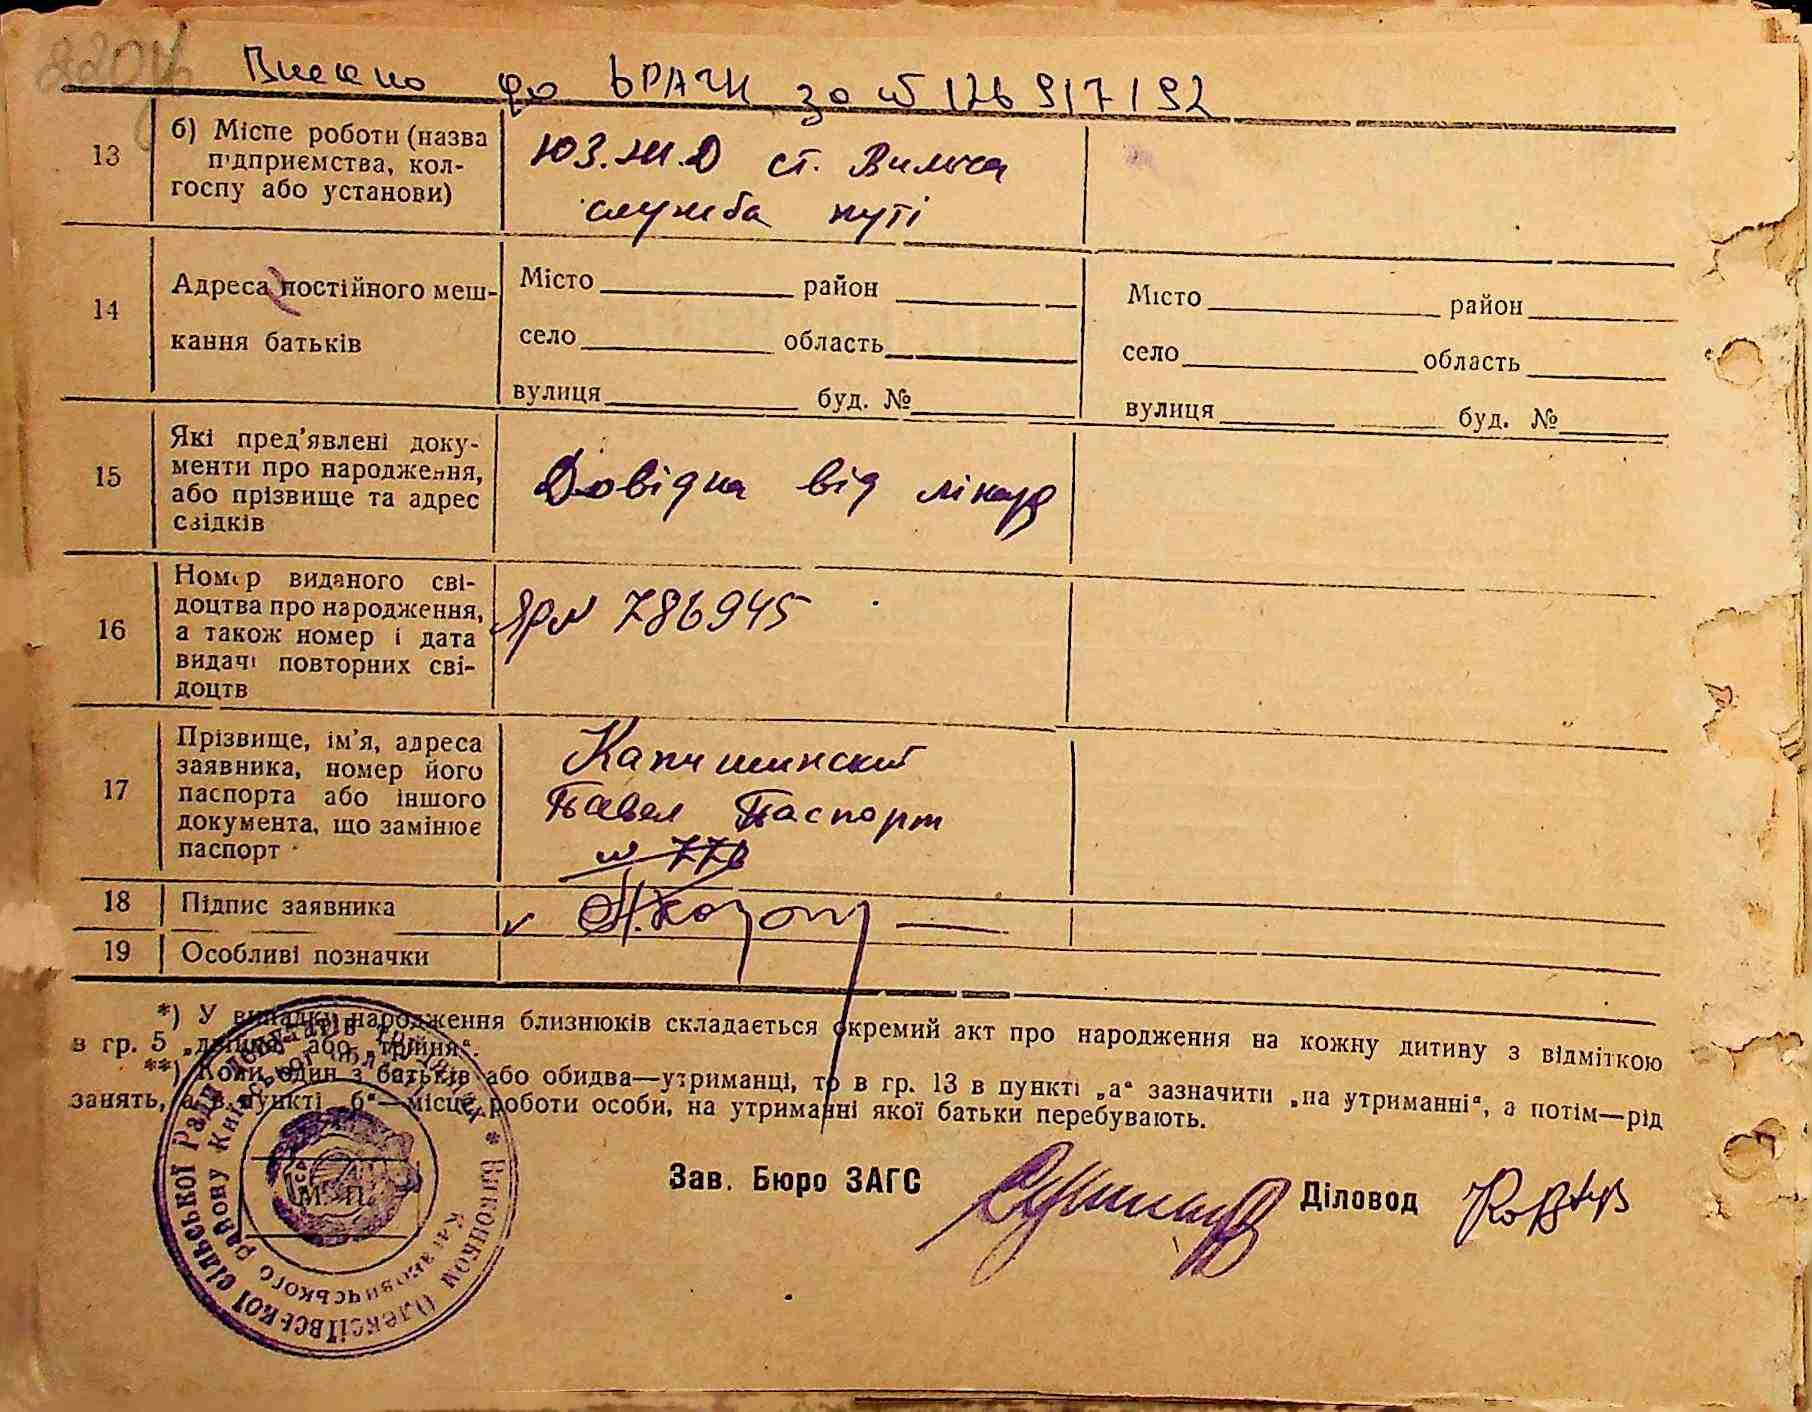 Внесено до ЬРАЧИ за № 126917192
13
б) Місце роботи (назва
підприємства, кол-
госпу або установи)
ЮЗ.Ж.Д ст. Вильча
служба путі
14
Адреса постійного меш-
кання батьків
Місто район
село область
вулиця буд. №
Місто район
село область
вулиця буд. №
15
Які пред'явлені доку-
менти про народження,
або прізвище та адрес
свідків
Довідка від лікаря
16
Номер виданого сві-
доцтва про народження,
а також номер і дата
видачі повторних сві-
доцтв
№ 786945
17
Прізвище, ім'я, адреса
заявника, номер його
паспорта або іншого
документа, що замінює
паспорт
Павел Паспорт
№ 776
18
Підпис заявника
19
Особливі позначки
*) У випадку народження близнюків складається окремий акт про народження на кожну дитину з відміткою
в гр. 5 „двійня“ або „трійня“.
**) Коли один з батьків або обидва—утриманці, то в гр. 13 в пункті „а“ зазначити „на утриманні“, а потім—рід
занять, а в пункті „б“—місце роботи особи, на утриманні якої батьки перебувають.
Зав. Бюро ЗАГС
Діловод
М. П.
* Виконком Олексіївської сільської Ради депутатів трудящих
Кагановичського району Київської області